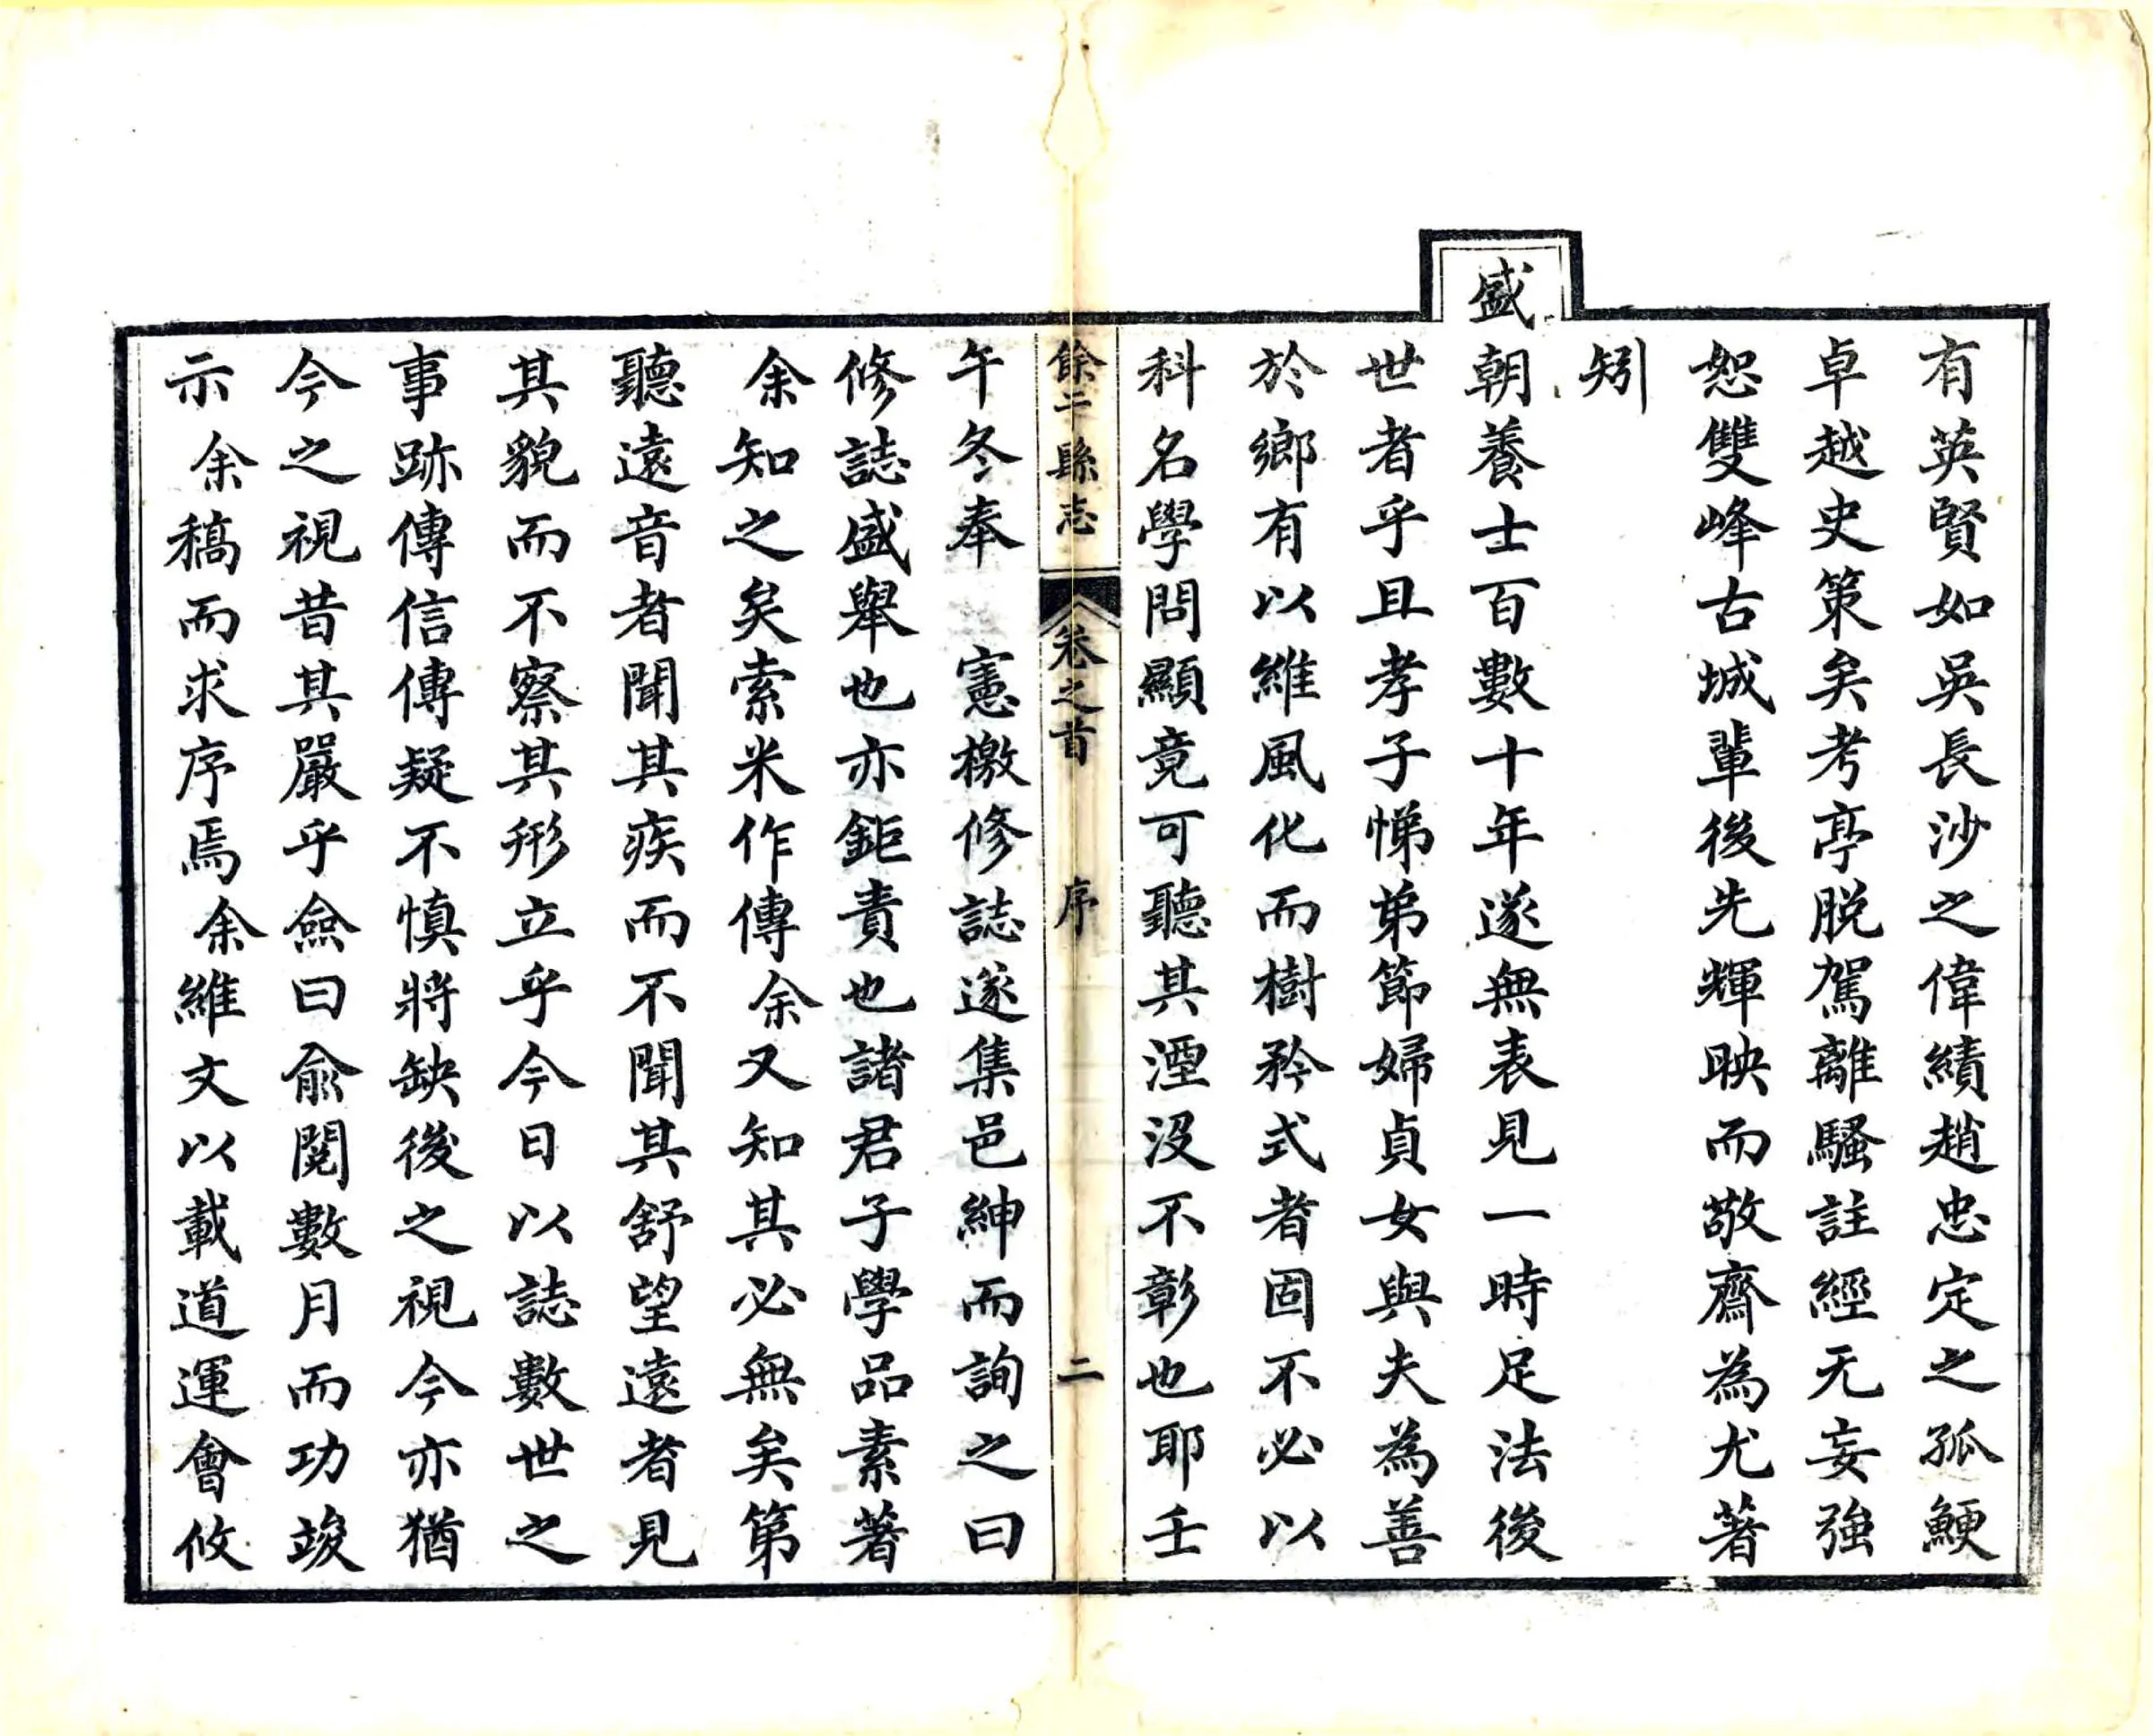 有英賢如吳長沙之偉績趙忠定之孤鯁
卓越史策矣考亭脫駕離騷註經无妄強
恕雙峰古城輩後先輝映而敬齋為尤著
矧
盛朝養士百數十年遂無表見一時足法後
世者乎且孝子悌弟節婦貞女與夫為善
於鄉有以維風化而樹矜式者固不必以
科名學問顯竟可聽其湮沒不彰也耶壬
餘干縣志 卷之首 序 二
午冬奉 憲檄修誌遂集邑紳而詢之曰
修誌盛舉也亦鉅責也諸君子學品素著
余知之矣索米作傳余又知其必無矣第
聽遠音者聞其疾而不聞其舒望遠者見
其貌而不察其形立乎今日以誌數世之
事跡傳信傳疑不慎將缺後之視今亦猶
今之視昔其嚴乎僉曰俞閱數月而功竣
示余稿而求序焉余維文以載道運會攸